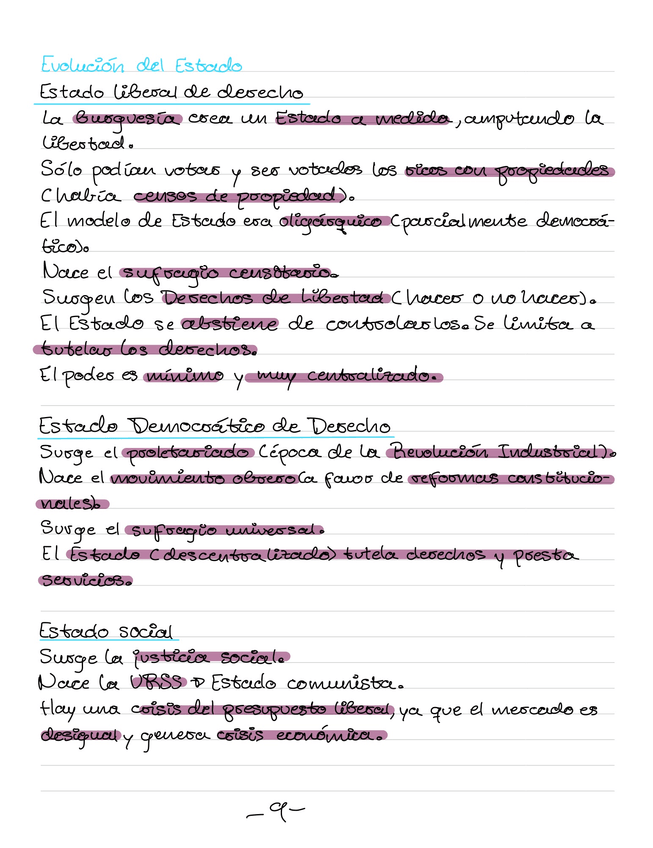 Evolución del Estado
Estado liberal de derecho
La Burguesía crea un Estado a medida, amputando la
libertad.
Sólo podían votar y ser votados los ricos con propiedades
(había censos de propiedad).
El modelo de Estado era oligárquico (parcialmente democrá-
tico).
Nace el sufragio censitario.
Surgen los Derechos de Libertad (hacer o no hacer).
El Estado se abstiene de controlarlos. Se limita a
tutelar los derechos.
El poder es mínimo y muy centralizado.
Estado Democrático de Derecho
Surge el proletariado (época de la Revolución Industrial).
Nace el movimiento obrero (a favor de reformas constitucio-
nales).
Surge el sufragio universal.
El Estado (descentralizado) tutela derechos y presta
servicios.
Estado social
Surge la justicia social.
Nace la URSS → Estado comunista.
Hay una crisis del presupuesto liberal, ya que el mercado es
desigual y genera crisis económica.
-9-